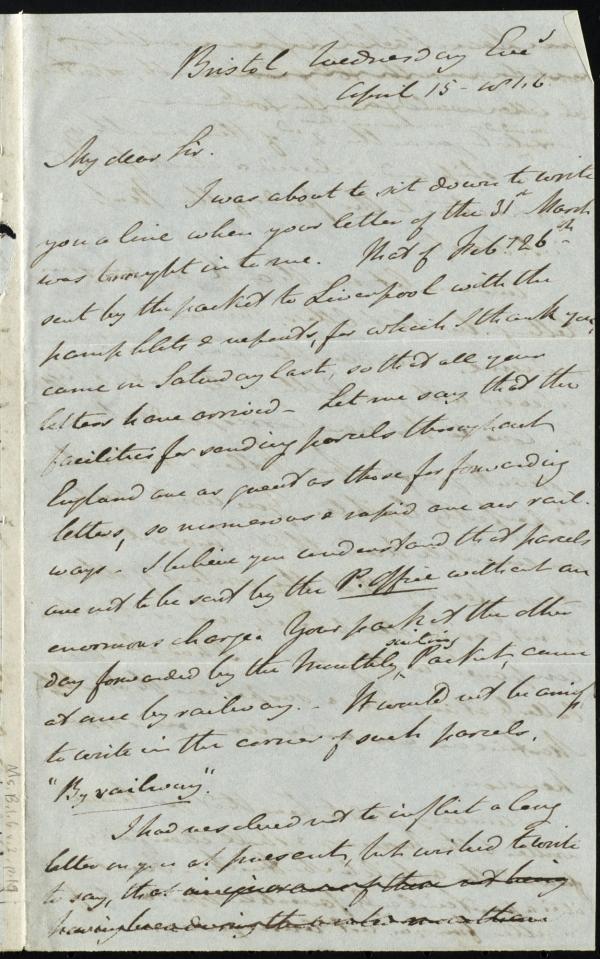 Bristol, Wednesday Eve
April 15 - 1846
My dear Sir.
I was about to sit down to write
you a line when your letter of the 31st March
was brought in to me. That of Feb. 26th
sent by the packet to Liverpool with the
pamphlets & reports, for which I thank you,
came on Saturday last, so that all your
letters have arrived - Let me say that the
facilities for sending parcels throughout
England are as great as those for forwarding
letters, so numerous & rapid are our rail-
ways - I believe you understand that parcels
are not to be sent by the P. Office without an
enormous charge. Your packet the other
day forwarded by the Monthly sailing Packet, came
at once by railway. - It would not be amiss
to write in the corner of such parcels,
"By railway".
I had resolved not to inflict a long
letter on you at present, but wished to write
to say, that of there not being
having been during the
Ms. B.1.6